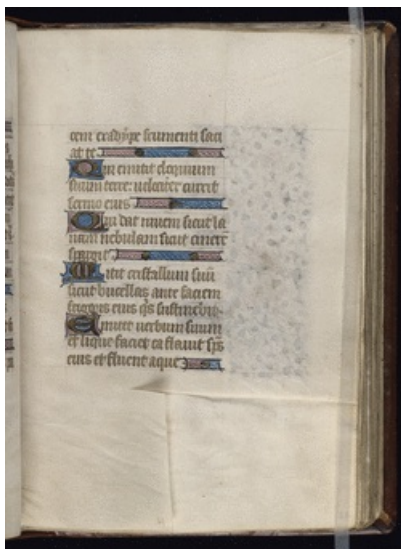 cem et adipe frumenti saci
at te
Qui emittit eloquium
suum terre: velociter currit
sermo eius
Qui dat nivem sicut la
nam nebulam sicut cinere
spargit
Mittit cristallum suu
sicut bucellas ante faciem
frigoris eius qis sustinebit
Emittet verbum suum
et lique faciet ea flavit sps
eius et fluent aque